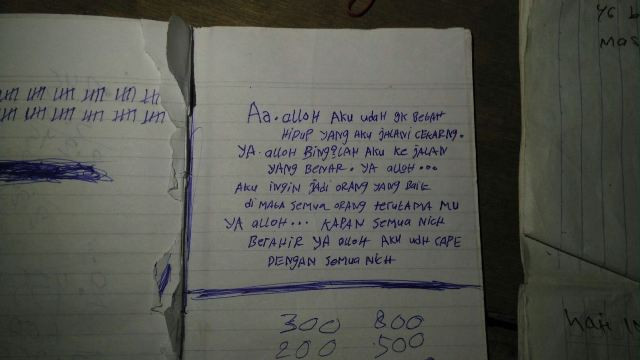 Aa. alloH AKu udah gk BetAH
HIDUP YANG AKU JALANI CEKARNG.
YA. alloH BINGBLAH AKU KE JALAN
YANG BENAR. YA alloH...
AKU INGIN JADI ORANG YANG BAIK
di MATA SEMUA ORANG terutama MU
YA alloH... KAPAN SEMUA NICH
BERAHIR YA alloH AKU UDH CAPE
DENGAN SEMUA NICH
300 800
200 500
YG
MAS
HATI